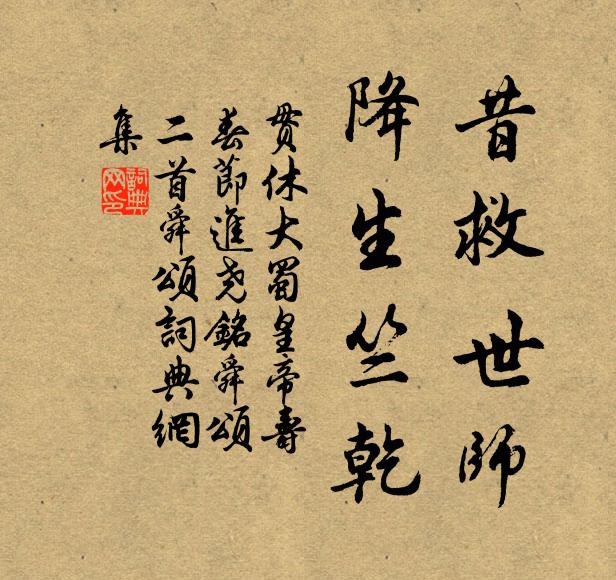 昔救世師
降生竺乾
貫休大蜀皇帝壽
春節進堯銘舜頌
二首舜頌詞典網
集
詞典網印